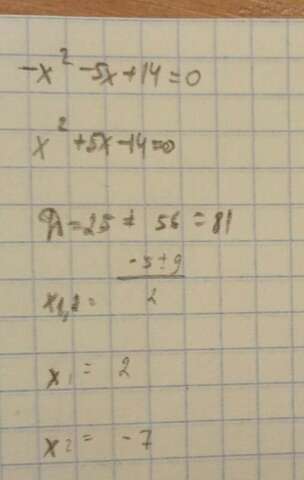 -x² -5x+14=0
x² +5x-14=0
D=25 + 56 = 81
x₁,₂ = (-5±9)/2
x₁ = 2
x₂ = -7